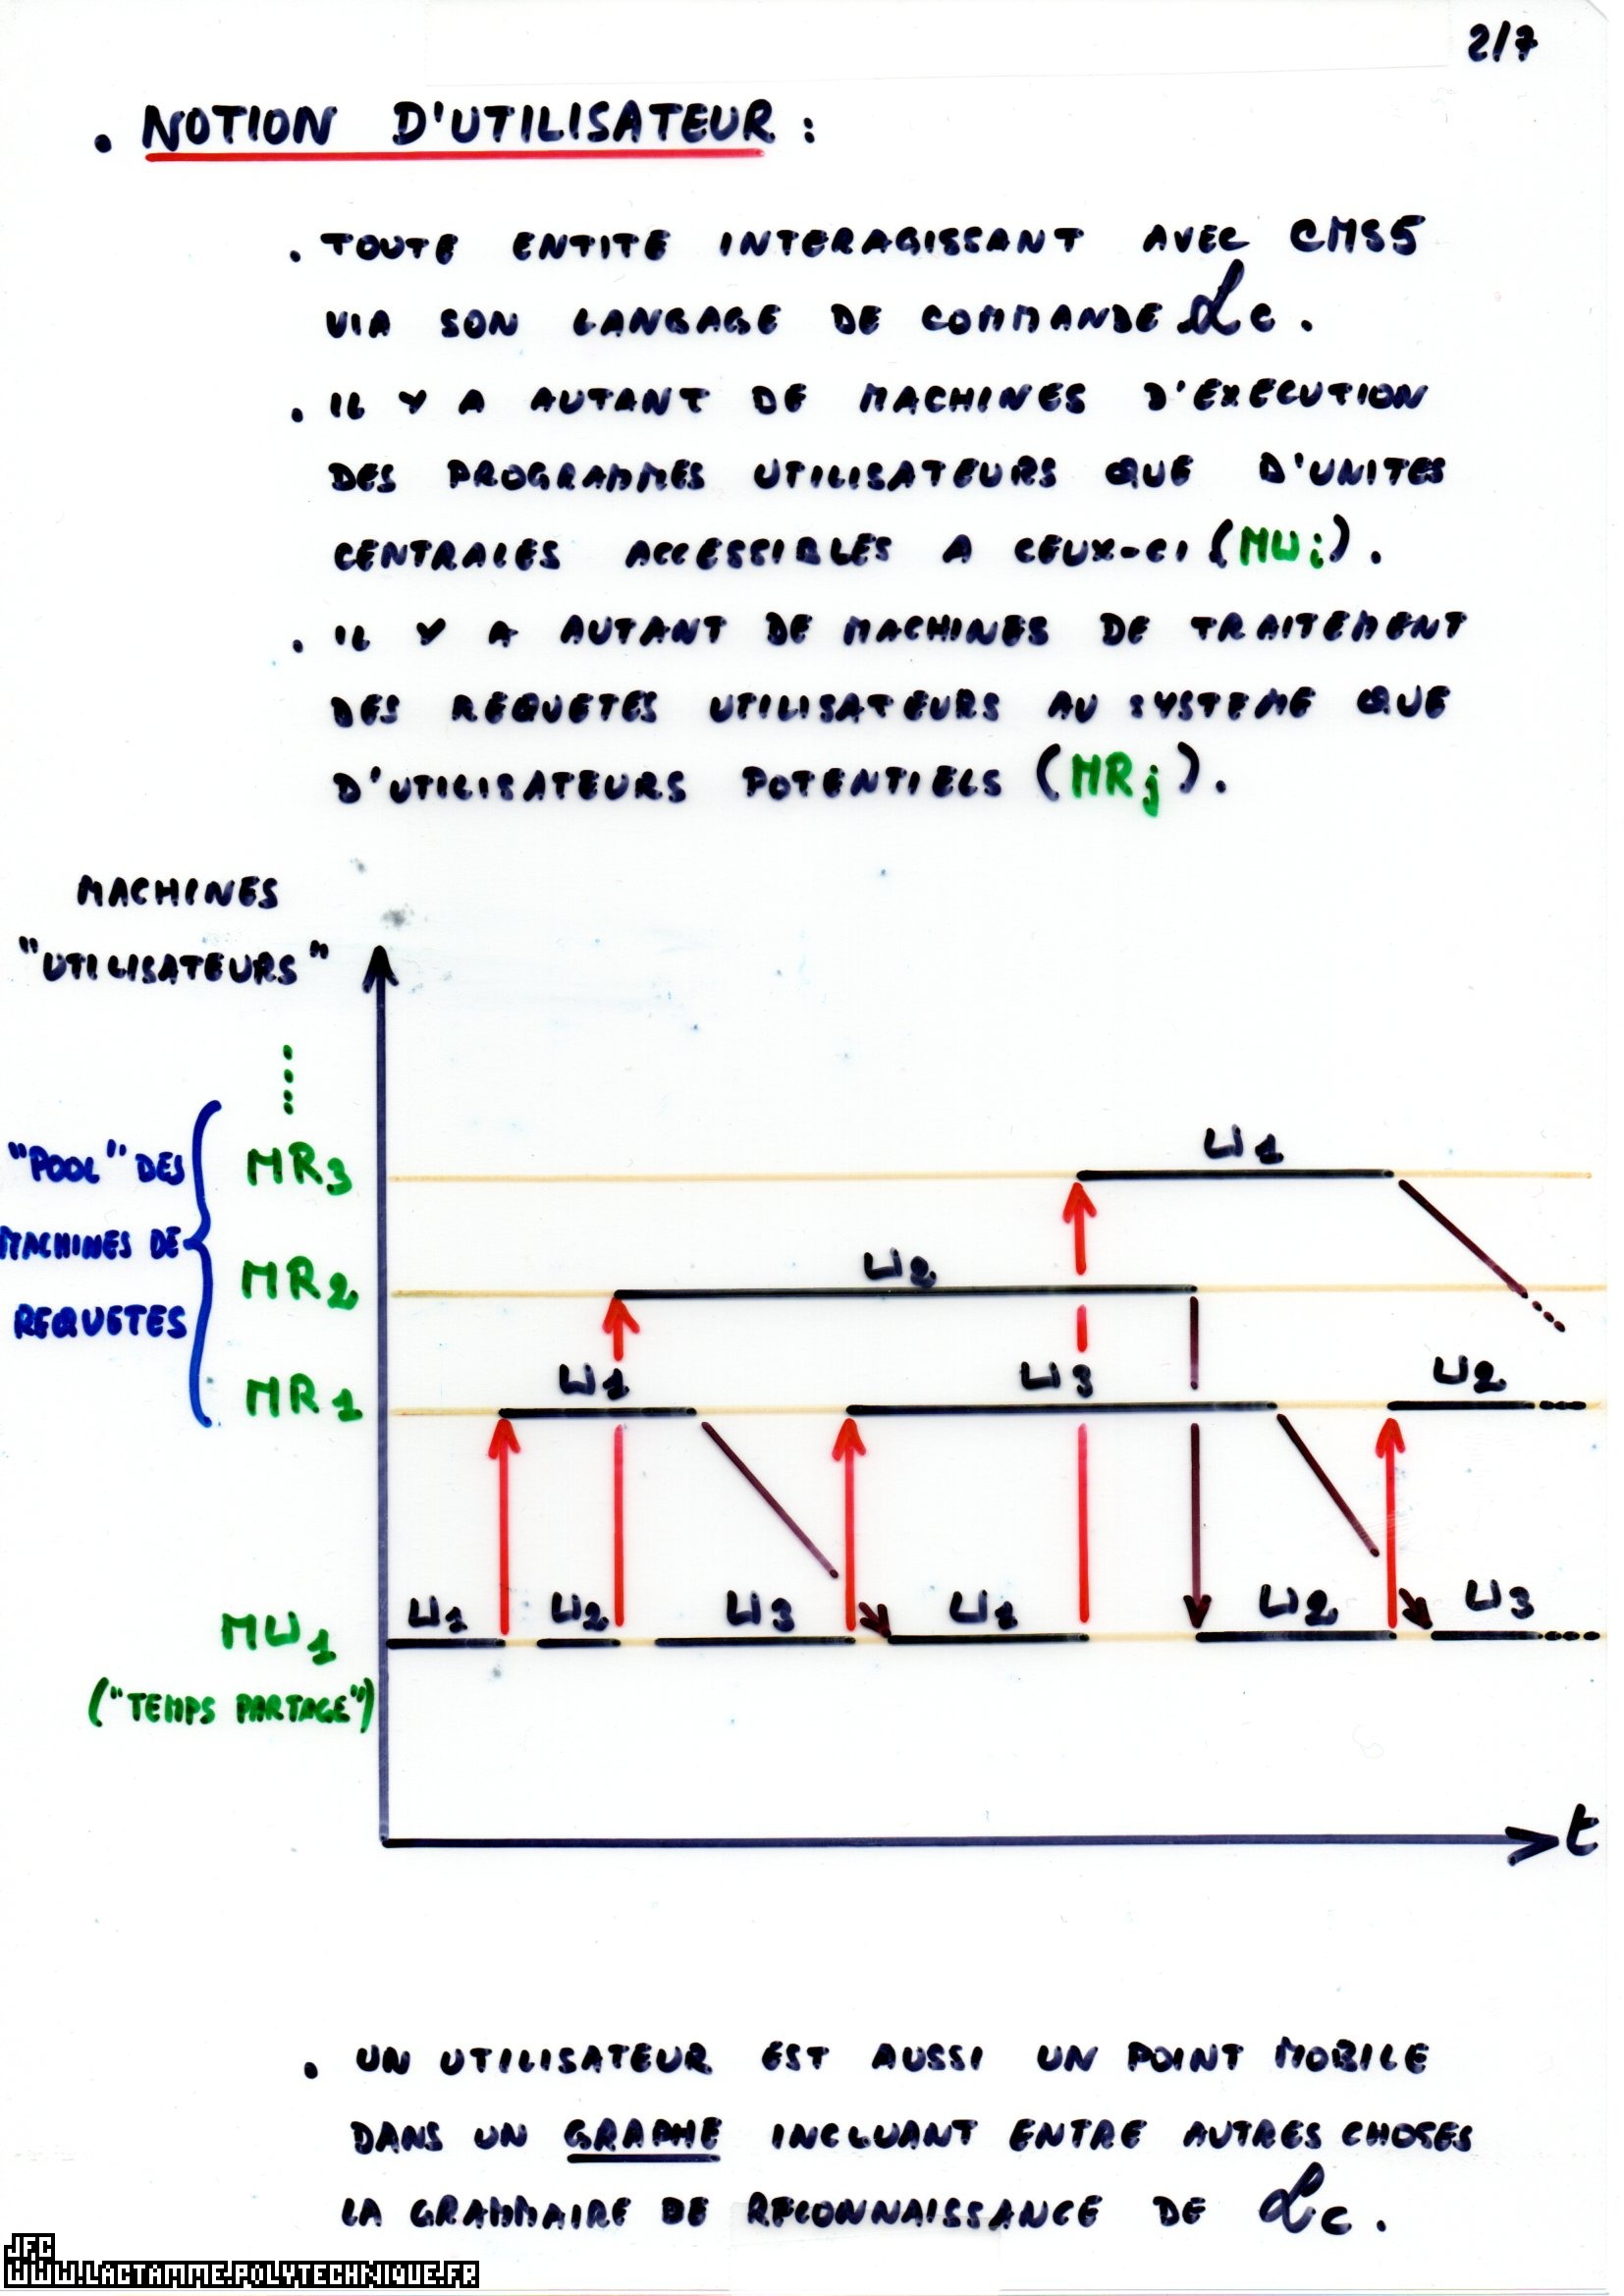 2/7
. NOTION D'UTILISATEUR :
. TOUTE ENTITE INTERAGISSANT AVEC CMS5
VIA SON LANGAGE DE COMMANDE ℒc .
. IL Y A AUTANT DE MACHINES D'EXECUTION
DES PROGRAMMES UTILISATEURS QUE D'UNITES
CENTRALES ACCESSIBLES A CEUX-CI (MUi).
. IL Y A AUTANT DE MACHINES DE TRAITEMENT
DES REQUETES UTILISATEURS AU SYSTEME QUE
D'UTILISATEURS POTENTIELS (MRj).
MACHINES
"UTILISATEURS"
"POOL" DES
MACHINES DE
REQUETES
MR3
U1
MR2
U2
MR1
U1
U3
U2
MU1
("TEMPS PARTAGE")
U1
U2
U3
U1
U2
U3
t
. UN UTILISATEUR EST AUSSI UN POINT MOBILE
DANS UN GRAPHE INCLUANT ENTRE AUTRES CHOSES
LA GRAMMAIRE DE RECONNAISSANCE DE ℒc .
JFC
WWW.LACTAMME.POLYTECHNIQUE.FR